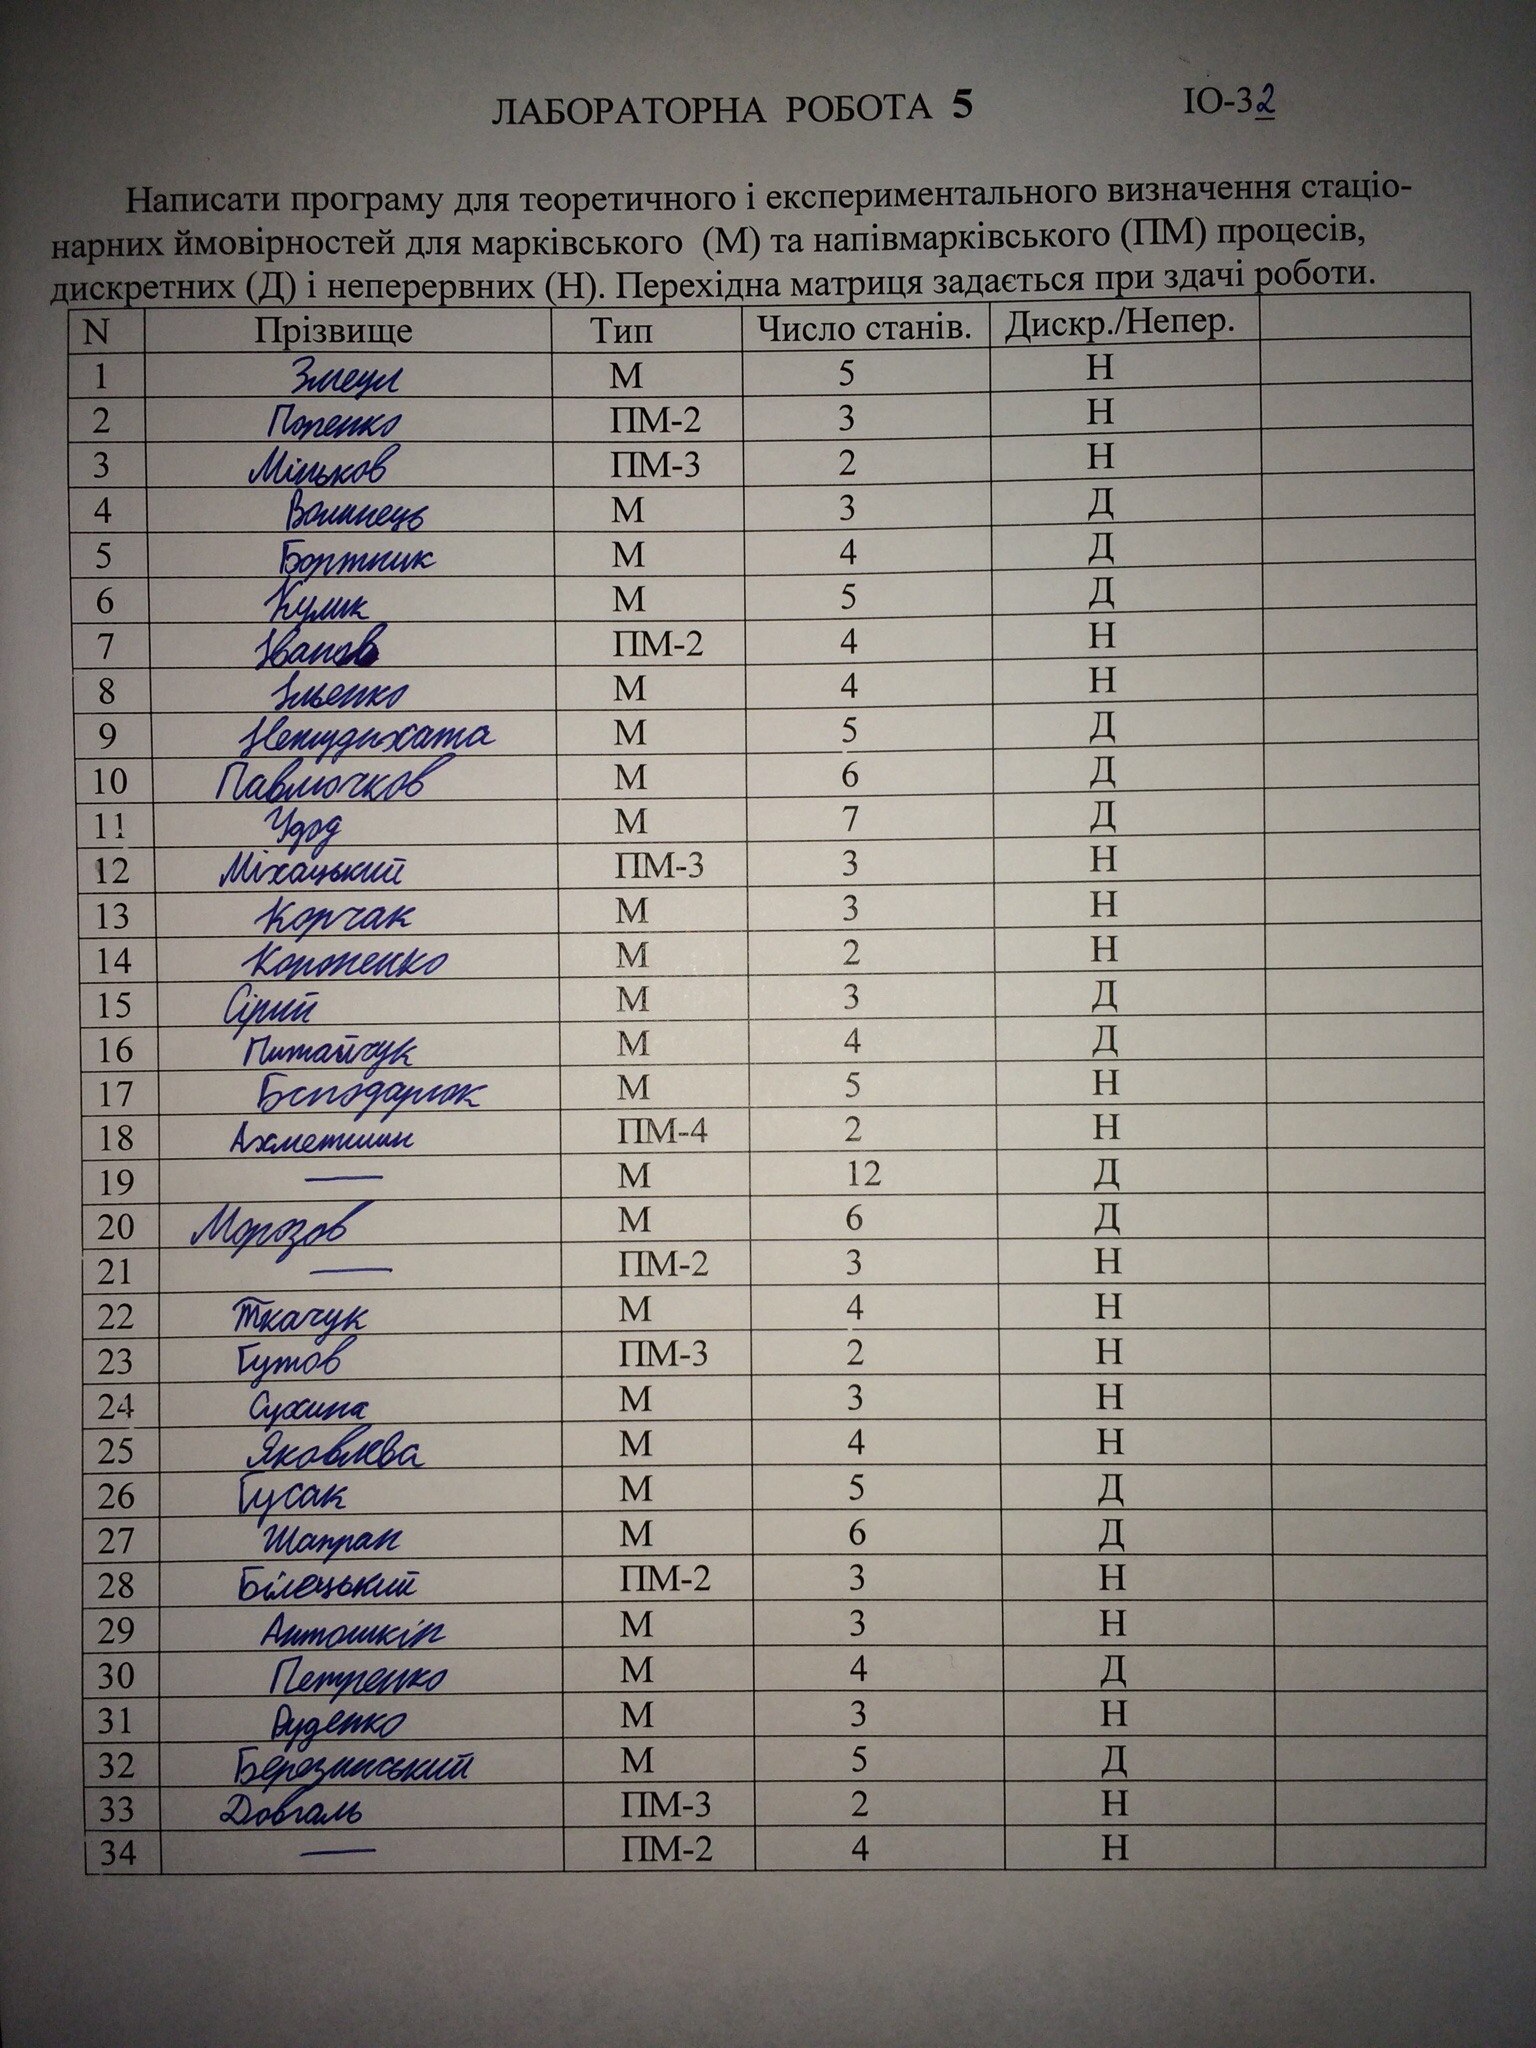 ЛАБОРАТОРНА РОБОТА 5 ІО-32
Написати програму для теоретичного і експериментального визначення стаціо-
нарних ймовірностей для марківського (М) та напівмарківського (ПМ) процесів,
дискретних (Д) і неперервних (Н). Перехідна матриця задається при здачі роботи.
N Прізвище Тип Число станів. Дискр./Непер.
1 М 5 Н
2 ПМ-2 3 Н
3 Мільков ПМ-3 2 Н
4 Волинець М 3 Д
5 Бортник М 4 Д
6 Кулик М 5 Д
7 Іванов ПМ-2 4 Н
8 Ільєнко М 4 Н
9 М 5 Д
10 Павлючков М 6 Д
11 Удод М 7 Д
12 Міхацький ПМ-3 3 Н
13 Корчак М 3 Н
14 М 2 Н
15 Сірий М 3 Д
16 Питайчук М 4 Д
17 М 5 Н
18 Ахметшин ПМ-4 2 Н
19 — М 12 Д
20 Морозов М 6 Д
21 — ПМ-2 3 Н
22 Ткачук М 4 Н
23 Гутов ПМ-3 2 Н
24 Сухина М 3 Н
25 Яковлєва М 4 Н
26 Гусак М 5 Д
27 Шапран М 6 Д
28 Білецький ПМ-2 3 Н
29 Антошкін М 3 Н
30 Петренко М 4 Д
31 Руденко М 3 Н
32 Березинський М 5 Д
33 Довгаль ПМ-3 2 Н
34 — ПМ-2 4 Н